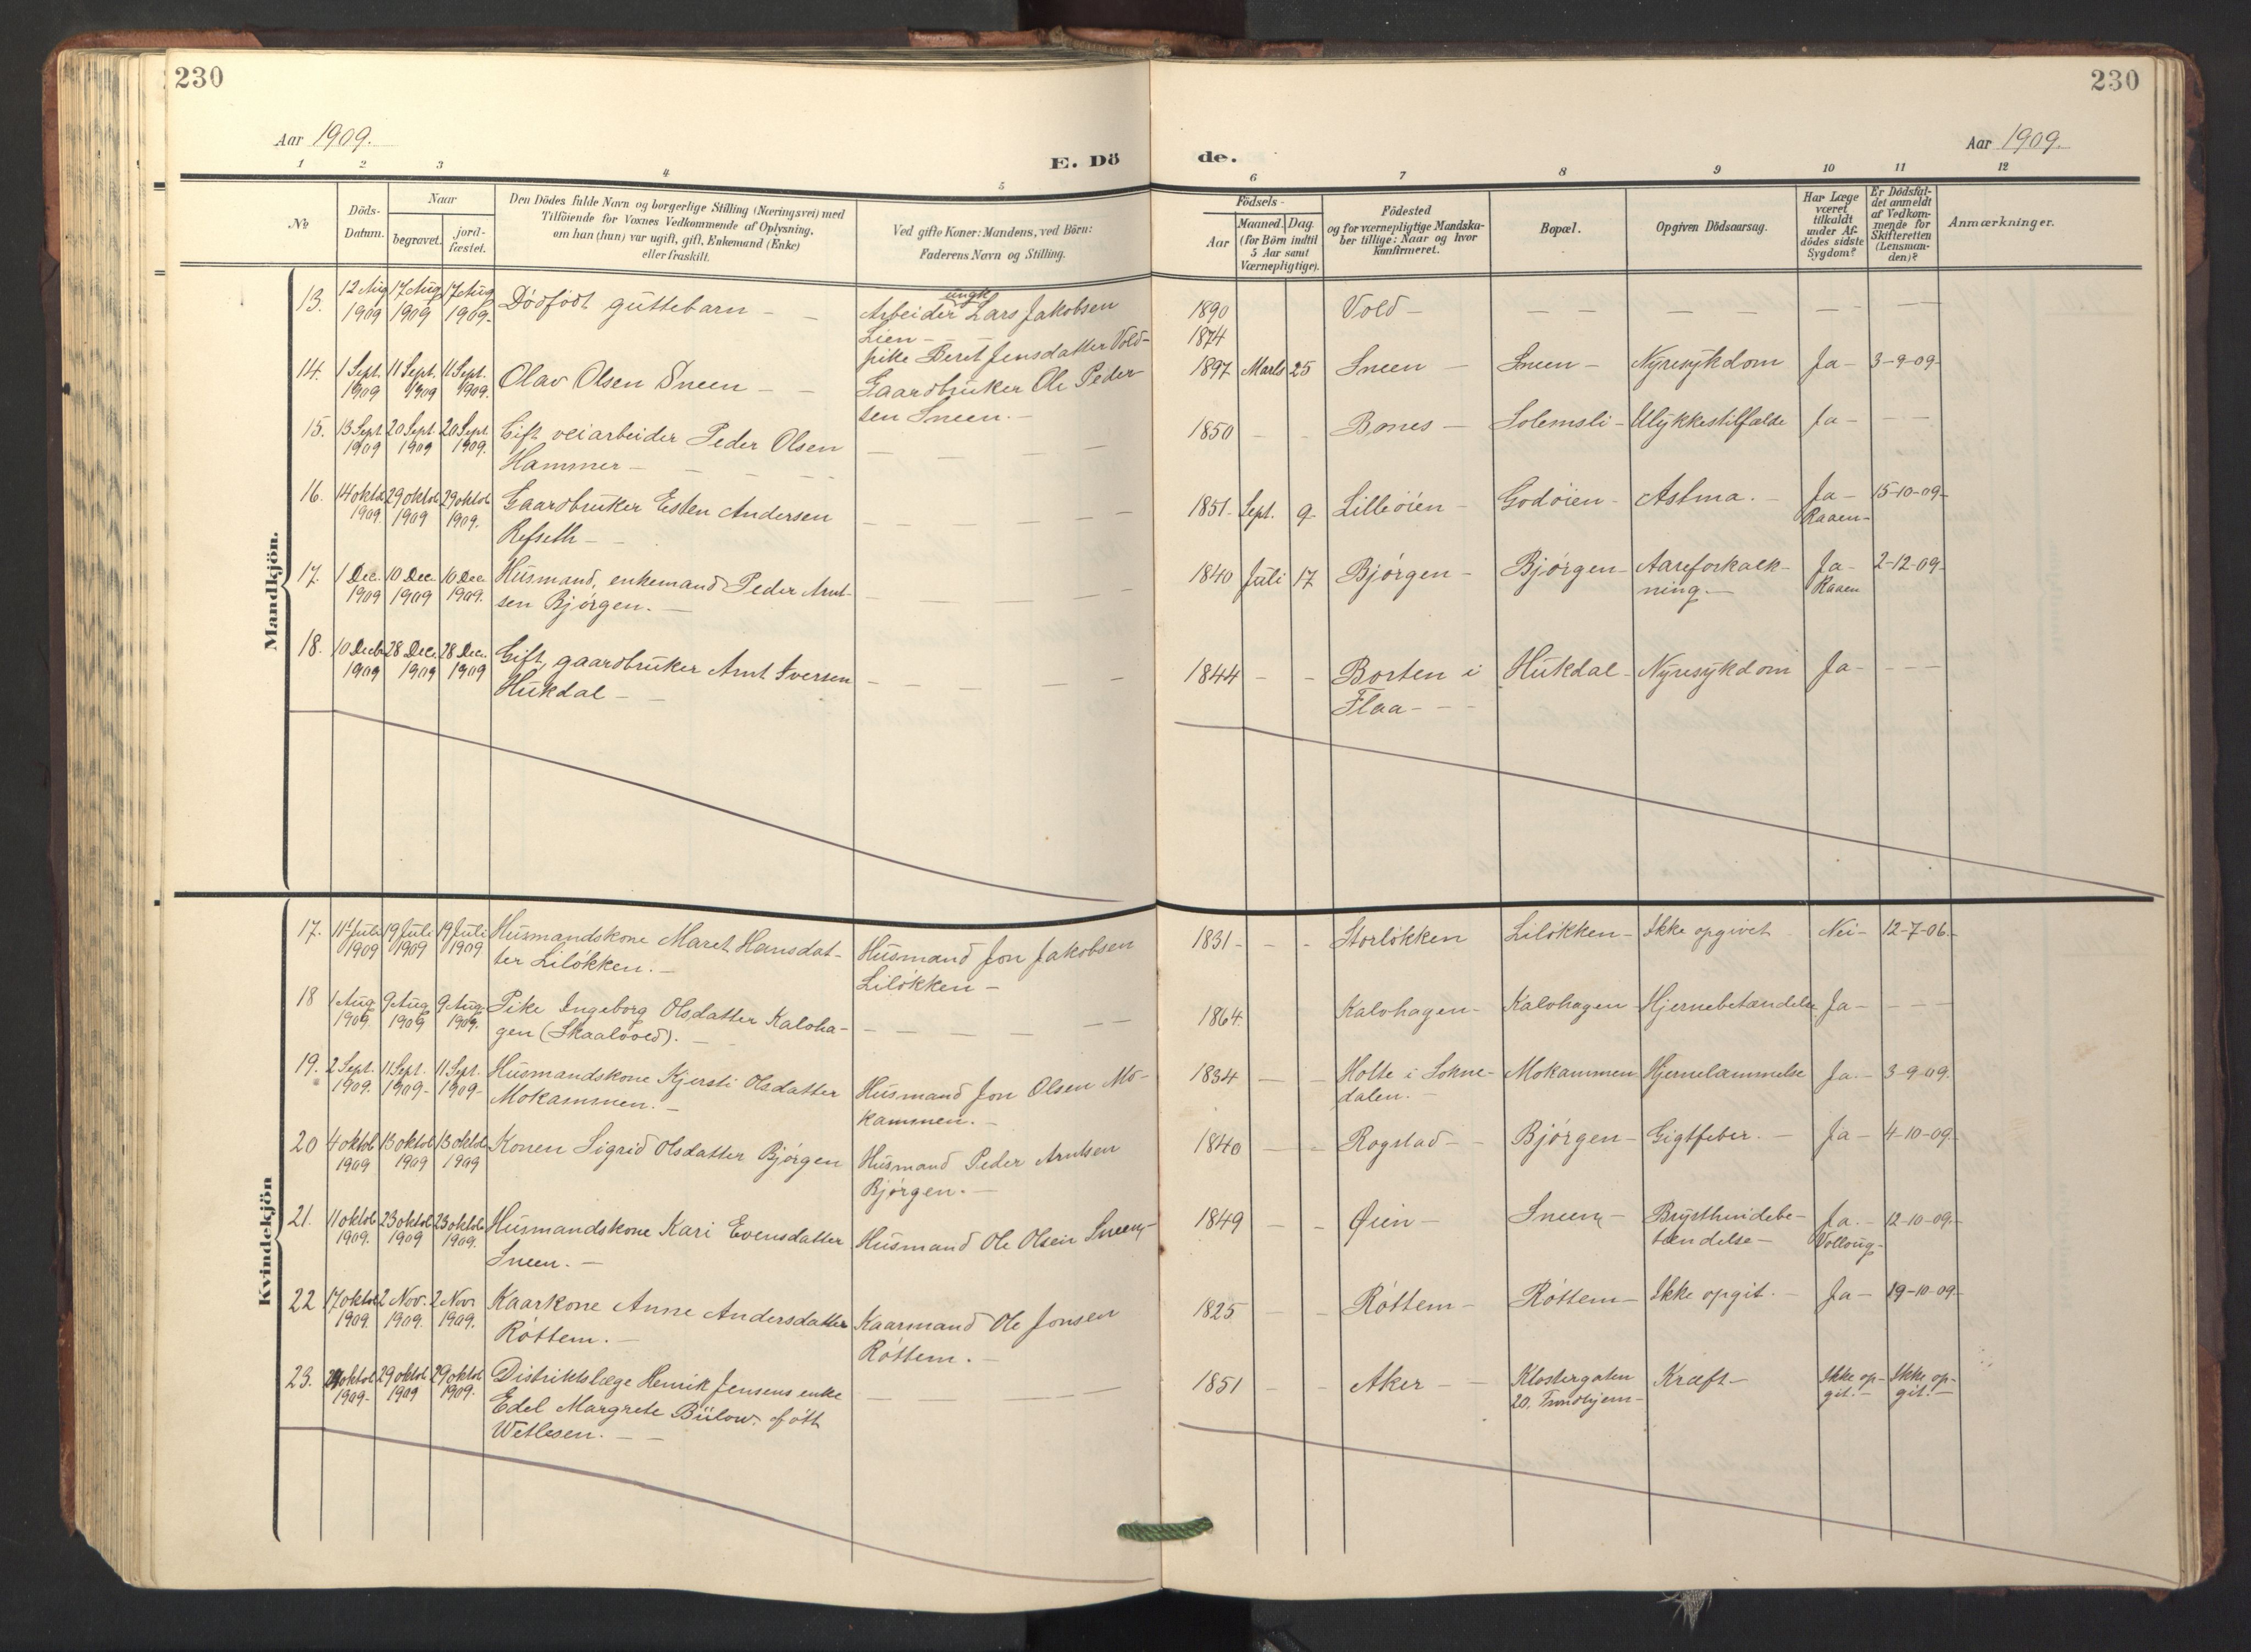 230
230
Aar 1909.
E. Dö
de.
Aar 1909.
1 2 3 4 5 6 7 8 9 10 11 12
No
Döds-
Datum.
Naar
begravet.
jord-
fæstet.
Den Dödes fulde Navn og borgerlige Stilling (Næringsvei) med
Tilföiende for Voxnes Vedkommende af Oplysning,
om han (hun) var ugift, gift, Enkemand (Enke)
eller fraskilt.
Ved gifte Koner: Mandens, ved Börn:
Faderens Navn og Stilling.
Födsels-
Aar
Maaned. Dag.
(for Börn indtil
5 Aar samt
Værnepligtige).
Födested
og for værnepligtige Mandska-
ber tillige: Naar og hvor
konfirmeret.
Bopæl.
Opgiven Dödsaarsag.
Har Læge
været
tilkaldt
under Af-
dödes sidste
Sygdom?
Er Dödsfal-
det anmeldt
af Vedkom-
mende for
Skifteretten
(Lensman-
den)?
Anmærkninger.
Mandkjön.
13. 12 Aug 17 Aug 17 Aug Dødfødt guttebarn - - Arbeider ungk. Lars Jakobsen 1890 Vold - — — — — — — —
1909 1909 1909. Lien - - - 1874
pike Beret Jensdatter Vold-
14. 1 Sept. 11 Sept. 11 Sept. Olav Olsen Sneen - - Gaardbruker Ole Peder- 1897 Marts 25 Sneen - Sneen - Nyresykdom Ja - 3-9-09-
1909 1909 1909. sen Sneen. -
15. 13 Sept. 20 Sept. 20 Sept. Gift veiarbeider Peder Olsen — — — — 1850 - - Bones - Solemsli - Ulykkestilfælde Ja - — —
1909 1909 1909. Hammer - - - -
16. 14 oktob 29 oktob 29 oktob Gaardbruker Esten Andersen — — — — — 1851- Sept. 9- Lilleøien - Godøien - Astma. - Ja - 15-10-09-
1909. 1909 1909. Refseth - - Raaen-
17. 1 Dec. 10 Dec. 10 Dec. Husmand, enkemand Peder Arnt- — — — — — 1840 Juli 17 Bjørgen - Bjørgen - Aareforkalk- Ja - 2-12-09-
1909 1909 1909. sen Bjørgen. - ning. - Raaen
18. 10 Decb. 28 Dec. 28 Dec. Gift, gaardbruker Arnt Iversen — — — — — 1844 - - Borten i Hukdal - Nyresykdom Ja - — — —
1909 1909 1909 Hukdal - - Flaa - - -
Kvindekjön
17. 11 Juli 19 Juli 19 Juli Husmandskone Maret Hansdat- Husmand Jon Jakobsen 1831- - - Storløkken Liløkken - Ikke opgivet Nei - 12-7-06.-
1909 1909 1909 ter Liløkken. - Liløkken -
18 1 Aug 9 Aug 9 Aug Pike Ingeborg Olsdatter Kaloha- — — — — — 1864. Kalvhagen - Kalvhagen - Hjernebetændelse Ja - — — —
1909. 1909 1909. gen (Skaalvold). -
19. 2 Sept. 11 Sept. 11 Sept. Husmandskone Kjersti Olsdatter Husmand Jon Olsen Mo- 1834 - - Holte i Sokne- Mokammen Hjernelammelse Ja. - 3-9-09.
1909. 1909- 1909- Mokammen. - kammen. - dalen. -
20 4 oktob 13 oktob 13 oktob Konen Sigrid Olsdatter Bjørgen Husmand Peder Arntsen 1840 - - Rogstad - - Bjørgen - Gigtfeber. - Ja - 4-10-09.-
1909 1909 1909 Bjørgen. -
21. 11 oktob 23 oktob 23 oktob Husmandskone Kari Evensdatter Husmand Ole Olsen Sneen,- 1849 - - Øien - Sneen, - Brysthindebe- Ja. - 12-10-09.-
1909. 1909 1909. Sneen. - tændelse - Volloug-
22 17 oktob 2 Nov. 2 Nov. Kaarkone Anne Andersdatter Kaarmand Ole Jonsen 1825 - - Røttem - Røttem - Ikke opgit. - Ja - 19-10-09.-
1909. 1909. 1909. Røttem. - Røttem. -
23. oktob 29 oktob 29 oktob Distriktslæge Henrik Jensens enke — — — — 1851 - - Aker - - Klostergaten Kræft - Ikke op- Ikke op-
1909- 1909 1909. Edel Margrete Bülow. født 20, Trondhjem- git. - git. -
Wetlesen. - -